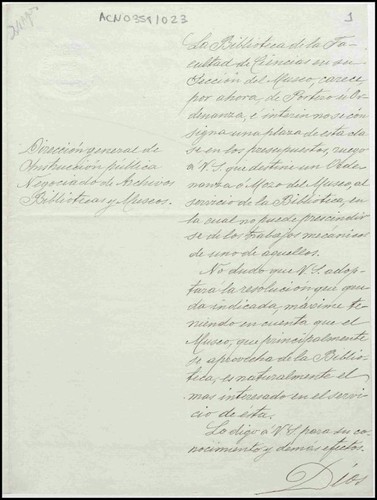 ACN0951/023
1
Dirección general de
Instrucción pública
Negociado de Archivos
Bibliotecas y Museos.
La Biblioteca de la Fa-
cultad de Ciencias en su
Sección del Museo, carece,
por ahora, de Portero ú Or-
denanza, é interin no se con-
signa una plaza de esta cla-
se en los presupuestos, ruego
á V.S. que destine un Orde-
nanza ó Mozo del Museo, al
servicio de la Biblioteca, en
la cual no puede prescindir-
se de los trabajos mecánicos
de uno de aquellos.
No dudo que V.S. adop-
tará la resolución que que-
da indicada, máxime te-
niendo en cuenta que el
Museo, que principalmente
se aprovecha de la Biblio-
teca, es naturalmente el
mas interesado en el servi-
cio de esta.
Lo digo á V.S. para su co-
nocimiento y demás efectos.
Dios